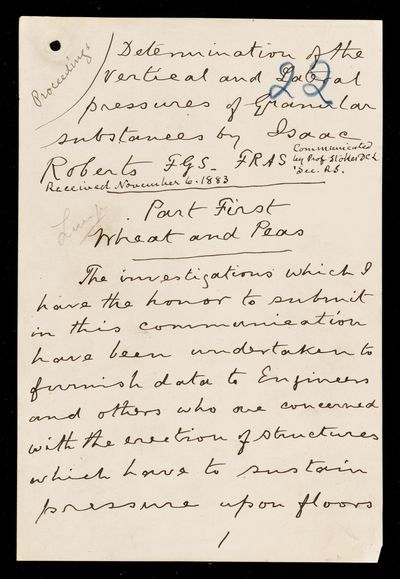 Proceedings
Determination of the
22
Vertical and Lateral
pressures of Granular
substances by Isaac
Roberts FGS. FRAS
Communicated
by Prof. Stokes DCL
Sec. R.S.
Received November 6. 1883
Part First
Wheat and Peas
The investigations which I
have the honor to submit
in this communication
have been undertaken to
furnish data to Engineers
and others who are concerned
with the erection of structures
which have to sustain
pressure upon floors
1